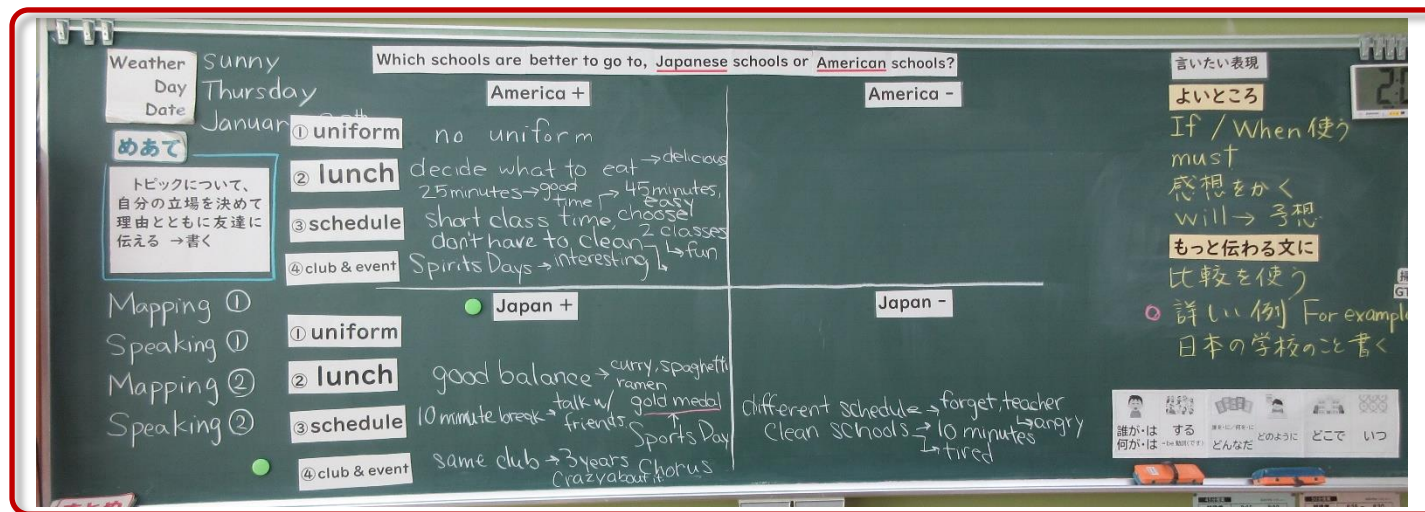 Weather
Day
Date
sunny
Thursday
Januar
めあて
トピックについて、
自分の立場を決めて
理由とともに友達に
伝える →書く
Mapping ①
Speaking ①
Mapping ②
Speaking ②
Which schools are better to go to, Japanese schools or American schools?
America +
① uniform
no uniform
② lunch
decide what to eat → delicious
25minutes → good time → 45minutes, easy
③ schedule
short class time, choose 2 classes
don't have to clean → fun
④ club & event
Spirits Days → interesting
America -
Japan +
① uniform
② lunch
good balance → curry, spaghetti
ramen
③ schedule
10 minute break → talk w/ friends
gold medal
↑
Sports Day
④ club & event
same club → 3years Chorus
crazy about it
Japan -
different schedule → forget, teacher
→ angry
clean schools → 10 minutes
→ tired
言いたい表現
よいところ
If / When 使う
must
感想をかく
will → 予想
もっと伝わる文に
比較を使う
詳しい例 For example
日本の学校のこと書く
誰が・は
何が・は
する
どんなだ
どのように
どこで
いつ